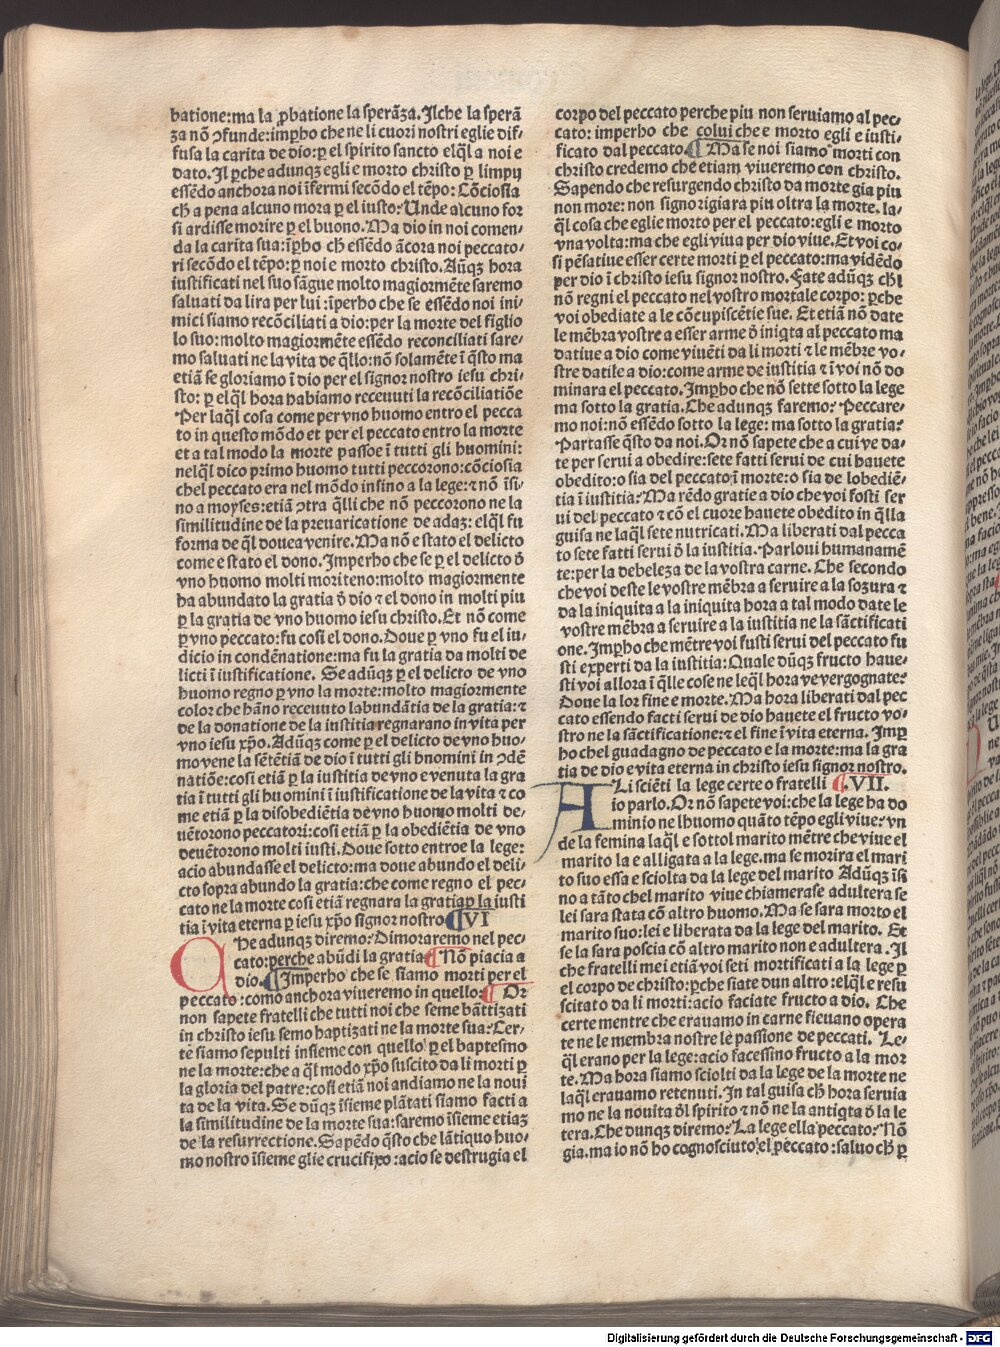 batione:ma la ꝓbatione la sperãza. Ilche la sperã
za nõ ↄfunde:imꝑho che ne li cuori nostri eglie dif-
fusa la carita de dio:ꝑ el spirito sancto elq̃l a noi e
dato. Il ꝑche adunqꝫ egli e morto christo ꝑ limpij
essẽdo anchora noi ĩfermi secõdo el tẽpo: Cõciosia
cħ a pena alcuno mora ꝑ el iusto: Unde alcuno for
si ardisse morire ꝑ el buono. Ma dio in noi comen-
da la carita sua:ĩꝑho cħ essẽdo ãcora noi peccato-
ri secõdo el tẽpo:ꝑ noi e morto christo. Aũqꝫ hora
iustificati nel suo sãgue molto magiormẽte saremo
saluati da lira per lui :ĩperho che se essẽdo noi ini-
mici siamo recõciliati a dio:per la morte del figlio
lo suo:molto magiormẽte essẽdo reconciliati sare-
mo saluati ne la vita de q̃llo:nõ solamẽte ĩ q̃sto ma
etiã se gloriamo ĩ dio per el signor nostro iesu chri-
sto: ꝑ elq̃l hora habiamo receuuti la recõciliatiõe
Per laq̃l cosa come per vno huomo entro el pecca
to in questo mõdo et per el peccato entro la morte
et a tal modo la morte passoe ĩ tutti gli huomini:
nelq̃l dico primo huomo tutti peccorono:cõciosia
chel peccato era nel mõdo insino a la lege:⁊ nõ ĩsi-
no a moyses:etiã ↄtra q̃lli che nõ peccorono ne la
similitudine de la preuaricatione de adaꝫ: elq̃l fu
forma de q̃l douea venire. Ma nõ e stato el delicto
come e stato el dono. Imperho che se ꝑ el delicto ð
vno huomo molti moriteno:molto magiormente
ha abundato la gratia ð dio ⁊ el dono in molti piu
ꝑ la gratia de vno huomo iesu christo. Et nõ come
ꝑ vno peccato:fu cosi el dono. Doue ꝑ vno fu el iu-
dicio in condẽnatione:ma fu la gratia da molti de
licti ĩ iustificatione. Se adũqꝫ ꝑ el delicto de vno
huomo regno ꝑ vno la morte:molto magiormente
color che hãno receuuto labundãtia de la gratia:⁊
de la donatione de la iustitia regnarano in vita per
vno iesu xp̃o. Adũqꝫ come ꝑ el delicto de vno huo-
mo vene la sẽtẽtia de dio ĩ tutti gli hnomini in ↄdẽ
natiõe:cosi etiã ꝑ la iustitia de vno e venuta la gra
tia ĩ tutti gli huomini ĩ iustificatione de la vita ⁊ co
me etiã ꝑ la disobediẽtia de vno huomo molti de-
uẽtorono peccatori:cosi etiã ꝑ la obediẽtia de vno
deuẽtorono molti iusti. Doue sotto entroe la lege:
acio abundasse el delicto:ma doue abundo el deli-
cto sopra abundo la gratia:che come regno el pec-
cato ne la morte cosi etiã regnara la gratia ꝑ la iusti
tia ĩ vita eterna ꝑ iesu xp̃o signor nostro ¶VI
Che adunqꝫ diremo: Dimoraremo nel pec-
cato:perche abũdi la gratia: ¶Nõ piacia a
dio. ¶Imperho che se siamo morti per el
peccato :como anchora viueremo in quello: ¶Or
non sapete fratelli che tutti noi che seme bãttizati
in christo iesu semo baptizati ne la morte sua: Cer-
te siamo sepulti insieme con quello ꝑ el baptesmo
ne la morte:che a q̃l modo xp̃o suscito da li morti ꝑ
la gloria del patre:cosi etiã noi andiamo ne la noui
ta de la vita. Se dũqꝫ ĩsieme plãtati siamo facti a
la similitudine de la morte sua:saremo ĩsieme etiaꝫ
de la resurrectione. Sapẽdo q̃sto che lãtiquo huo-
mo nostro ĩsieme glie crucifixo :acio se destrugia el
corpo del peccato perche piu non seruiamo al pec-
cato: imperho che colui che e morto egli e iusti-
ficato dal peccato. ¶Ma se noi siamo morti con
christo credemo che etiam viueremo con christo.
Sapendo che resurgendo christo da morte gia piu
non more: non signorigiara piu oltra la morte. la-
q̃l cosa che eglie morto per el peccato:egli e morto
vna volta:ma che egli viua per dio viue. Et voi co-
si pẽsatiue esser certe morti ꝑ el peccato:ma vidẽdo
per dio ĩ christo iesu signor nostro. Fate adũqꝫ cħl
nõ regni el peccato nel vostro mortale corpo: ꝑche
voi obediate a le cõcupiscẽtie sue. Et etiã nõ date
le mẽbra vostre a esser arme ð iniqta al peccato ma
datiue a dio come viuẽti da li morti ⁊ le mẽbre vo-
stre datile a dio:come arme de iustitia ⁊ ĩ voi nõ do
minara el peccato. Imꝑho che nõ sette sotto la lege
ma sotto la gratia. Che adunqꝫ faremo: Peccare-
mo noi:nõ essẽdo sotto la lege: ma sotto la gratia:
Partasse q̃sto da noi. Or nõ sapete che a cui ve da-
te per serui a obedire:sete fatti serui de cui hauete
obedito:o sia del peccato ĩ morte:o sia de lobediẽ-
tia ĩ iustitia: Ma rẽdo gratie a dio che voi fosti ser
ui del peccato ⁊ cõ el cuore hauete obedito in q̃lla
guisa ne laq̃l sete nutricati. Ma liberati dal pecca
to sete fatti serui ð la iustitia. Parloui humanamẽ
te:per la debeleza de la vostra carne. Che secondo
che voi deste le vostre mẽbra a seruire a la sozura ⁊
da la iniquita a la iniquita hora a tal modo date le
vostre mẽbra a seruire a la iustitia ne la sãctificati
one. Imꝑho che mẽtre voi fusti serui del peccato fu
sti experti da la iustitia: Quale dũqꝫ fructo haue-
sti voi allora ĩ q̃lle cose ne leq̃l hora ve vergognate:
Doue la lor fine e morte. Ma hora liberati dal pec
cato essendo facti serui de dio hauete el fructo vo-
stro ne la sãctificatione:⁊ el fine ĩ vita eterna. Imꝑ
ho chel guadagno de peccato e la morte:ma la gra
tia de dio e vita eterna in christo iesu signor nostro.
ALi sciẽti la lege certe o fratelli ¶.VII.
io parlo. Or nõ sapete voi:che la lege ha do
minio ne lhuomo quãto tẽpo egli viue: vn
de la femina laq̃l e sottol marito mẽtre che viue el
marito la e alligata a la lege. ma se morira el mari
to suo essa e sciolta da la lege del marito Adũqꝫ ĩsi
no a tãto chel marito viue chiamerase adultera se
lei sara stata cõ altro huomo. Ma se sara morto el
marito suo:lei e liberata da la lege del marito. Et
se la sara poscia cõ altro marito non e adultera . Il
che fratelli mei etiã voi seti mortificati a la lege ꝑ
el corpo de christo:ꝑche siate dun altro :elq̃l e resu
scitato da li morti :acio faciate fructo a dio. Che
certe mentre che erauamo in carne fieuano opera
te ne le membra nostre le passione de peccati. Le-
q̃l erano per la lege:acio facessino fructo a la mor
te. Ma hora siamo sciolti da la lege de la morte ne
laq̃l erauamo retenuti. In tal guisa cħ hora seruia
mo ne la nouita ðl spirito ⁊ nõ ne la antiqta ð la le
tera. Che dunqꝫ diremo: La lege ella peccato: Nõ
gia. ma io nõ ho cognosciuto el peccato :saluo cħ ꝑ
Digitalisierung gefördert durch die Deutsche Forschungsgemeinschaft - DFG